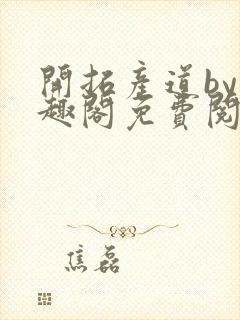 開拓產道by
趣閣免費閱
焦磊